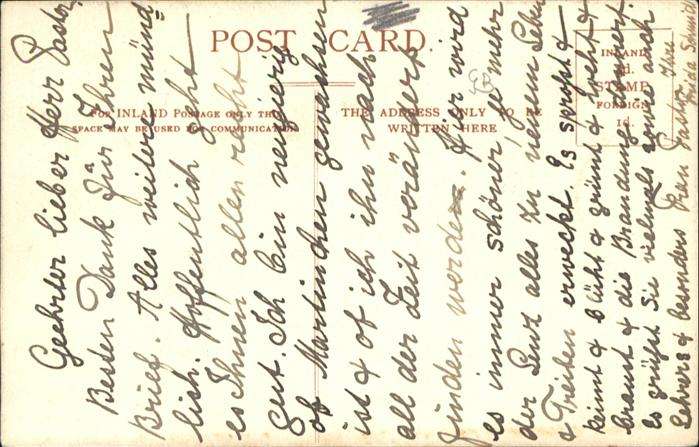 POST CARD.
FOR INLAND POSTAGE ONLY THIS
SPACE MAY BE USED FOR COMMUNICATION
THE ADDRESS ONLY TO BE
WRITTEN HERE
INLAND
STAMP
FOREIGN
1d.
Geehrter lieber Herr Pastor,
Besten Dank für Ihren
Brief. Alles weitere münd
lich. Hoffentlich geht
es Ihnen allen recht
gut. Ich bin neugierig
ob Martinchen gewachsen
ist & ob ich ihn nach
all der Zeit verändert
finden werde. Hier wird
es immer schöner, je mehr
der Lenz alles zu neuem Leben
& Treiben erweckt. Es sprosst &
keimt & blüht & grünt & weht &
braust & die Brandung donnert.
Es grüßt Sie vielmals sowie auch
Lehrers & besonders Frau Pastor Ihre